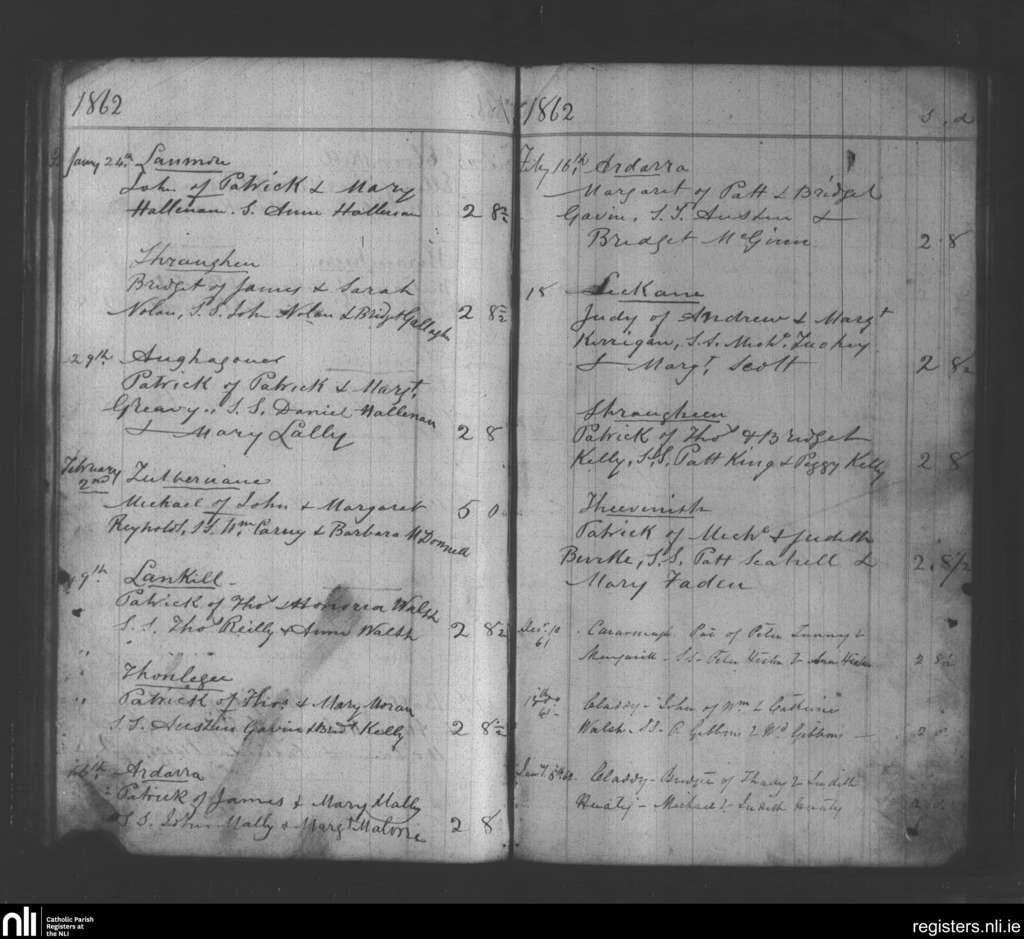 1862
Jany 24th Lanmore
John of Patrick & Mary
Hallenan. S. Anne Hallenan 2 8½
Thraugheen
Bridget of James & Sarah
Nolan, S.S. John Nolan & Bridgt Gallagh 2 8½
29th Aughagower
Patrick of Patrick & Margt
Greavy., S.S. Daniel Hallenan
& Mary Lally 2 8
February
2nd
Michael of John & Margaret 5 0
Reynolds, S.S. Wm Carny & Barbara McDonnell
9th Lankill
Patrick of Thos & Honoria Walsh
S.S. Thos Reilly & Anne Walsh 2 8½
" Thonlegee
" Patrick of Thos & Mary Moran
S.S. Austin Gavin & Bridt Kelly 2 8½
16th Ardarra
Patrick of James & Mary Mally
S.S. John Mally & Margt Malone 2 8
1862
s. d
Feby 16th, Ardarra
Margaret of Patt & Bridget
Gavin, S.S. Austin &
Bridget McGinn 2.8
18 Leckane
Judy of Andrew & Margt
Kerrigan, S.S. Michl. Tuohey
& Margt. Scott 2 8½
Thraugheen
Patrick of Thos & Bridget
Kelly, S.S. Patt King & Peggy Kelly 2 8
Thuvinish
Patrick of Michl & Judith
Burke, S.S. Patt Scahill &
Mary Faden 2.8½
Decr. 10
61
Pat of Peter Tunney &
Margarett - SS - Peter & Ann 2 8½
Claddy - John of Wm & Catherine
Walsh. SS - Gibbons & Gibbons - 2
Claddy - Bridget of Thady & Judith
- Michael & Judith
nli
Catholic Parish
Registers at
the NLI
registers.nli.ie